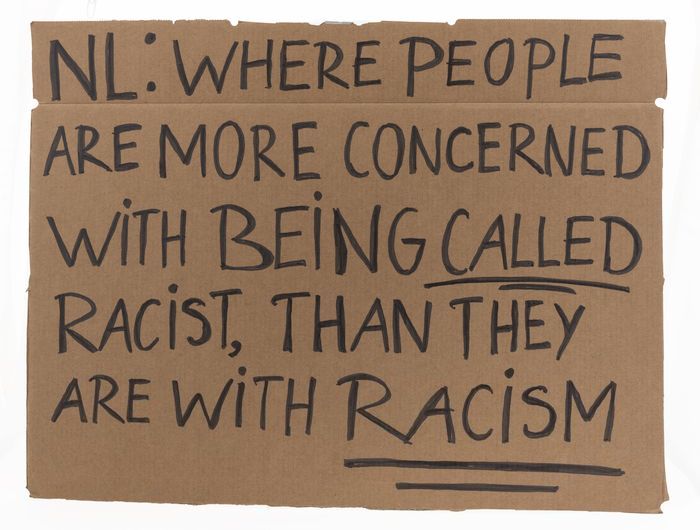 NL: WHERE PEOPLE
ARE MORE CONCERNED
WITH BEING CALLED
RACIST, THAN THEY
ARE WITH RACISM